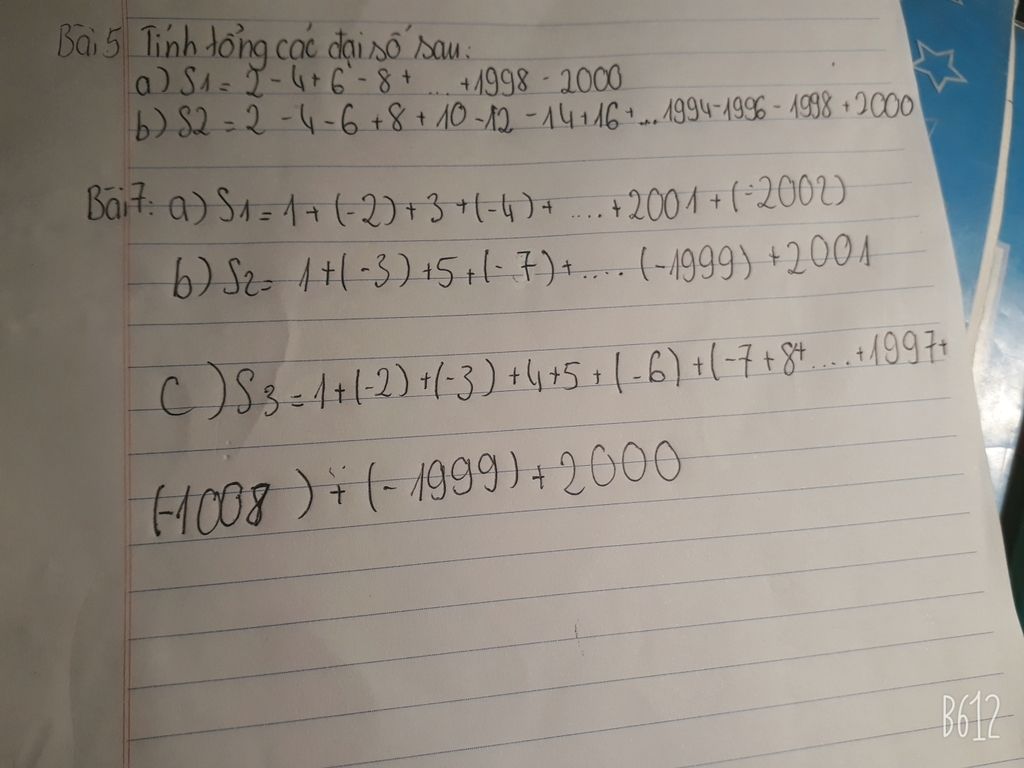 Bài 5 Tính tổng các đại số sau:
a) S1 = 2 - 4 + 6 - 8 + ... + 1998 - 2000
b) S2 = 2 - 4 - 6 + 8 + 10 - 12 - 14 + 16 + ... 1994 - 1996 - 1998 + 2000
Bài 7: a) S1 = 1 + (-2) + 3 + (-4) + .... + 2001 + (-2002)
b) S2 = 1 + (-3) + 5 + (-7) + .... (-1999) + 2001
C) S3 = 1 + (-2) + (-3) + 4 + 5 + (-6) + (-7 + 8 + .... + 1997 +
(-1008) + (-1999) + 2000
B612